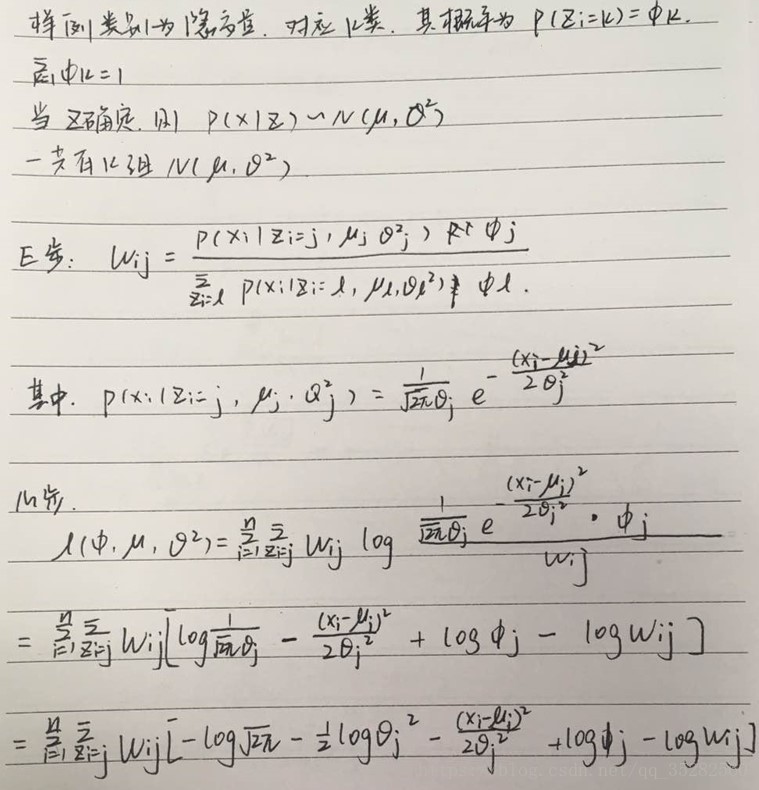 样例类别为隐变量. 对应 k类. 其概率为 P(Zi=k)=ϕk.
Σϕk=1
当 Z确定. 则 P(x|z)~N(μ, θ²)
一共有k组 N(μ, θ²)
E步: Wij = P(xi|zi=j, μj θ²j) ϕj / Σ_{zi=l} P(xi|zi=l, μl, θl²) ϕl.
其中. P(xi|zi=j, μj, θ²j) = 1/(√2π θj) e^{-(xi-μj)²/2θj²}
M步.
l(ϕ, μ, θ²) = Σ_{i=1}^{n} Σ_{zi=j} Wij log (1/(√2π θj) e^{-(xi-μj)²/2θj²} · ϕj) / Wij
= Σ_{i=1}^{n} Σ_{zi=j} Wij [log 1/(√2π θj) - (xi-μj)²/2θj² + log ϕj - log Wij]
= Σ_{i=1}^{n} Σ_{zi=j} Wij [-log√2π - ½ log θj² - (xi-μj)²/2θj² + log ϕj - log Wij]